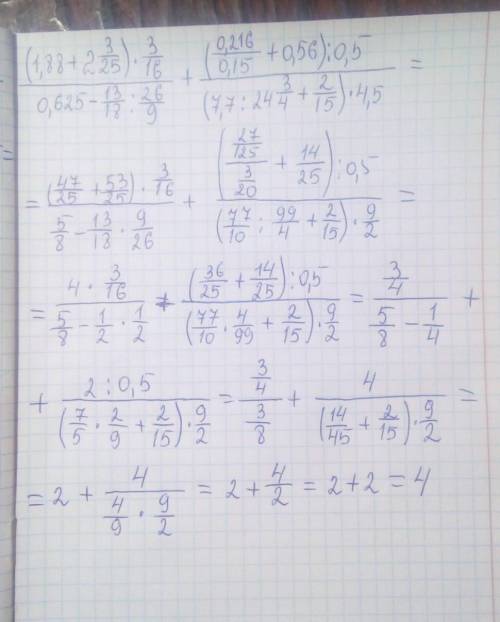 \frac{(1,88+2\frac{3}{25})\cdot\frac{3}{16}}{0,625-\frac{13}{18}:\frac{26}{9}}+\frac{(\frac{0,216}{0,15}+0,56):0,5}{(7,7:24\frac{3}{4}+\frac{2}{15})\cdot4,5}=
=\frac{(\frac{47}{25}+\frac{53}{25})\cdot\frac{3}{16}}{\frac{5}{8}-\frac{13}{18}\cdot\frac{9}{26}}+\frac{(\frac{\frac{27}{125}}{\frac{3}{20}}+\frac{14}{25}):0,5}{(\frac{77}{10}:\frac{99}{4}+\frac{2}{15})\cdot\frac{9}{2}}=
=\frac{4\cdot\frac{3}{16}}{\frac{5}{8}-\frac{1}{2}\cdot\frac{1}{2}}+\frac{(\frac{36}{25}+\frac{14}{25}):0,5}{(\frac{77}{10}\cdot\frac{4}{99}+\frac{2}{15})\cdot\frac{9}{2}}=\frac{\frac{3}{4}}{\frac{5}{8}-\frac{1}{4}}+
+\frac{2:0,5}{(\frac{7}{5}\cdot\frac{2}{9}+\frac{2}{15})\cdot\frac{9}{2}}=\frac{\frac{3}{4}}{\frac{3}{8}}+\frac{4}{(\frac{14}{45}+\frac{2}{15})\cdot\frac{9}{2}}=
=2+\frac{4}{\frac{4}{9}\cdot\frac{9}{2}}=2+\frac{4}{2}=2+2=4